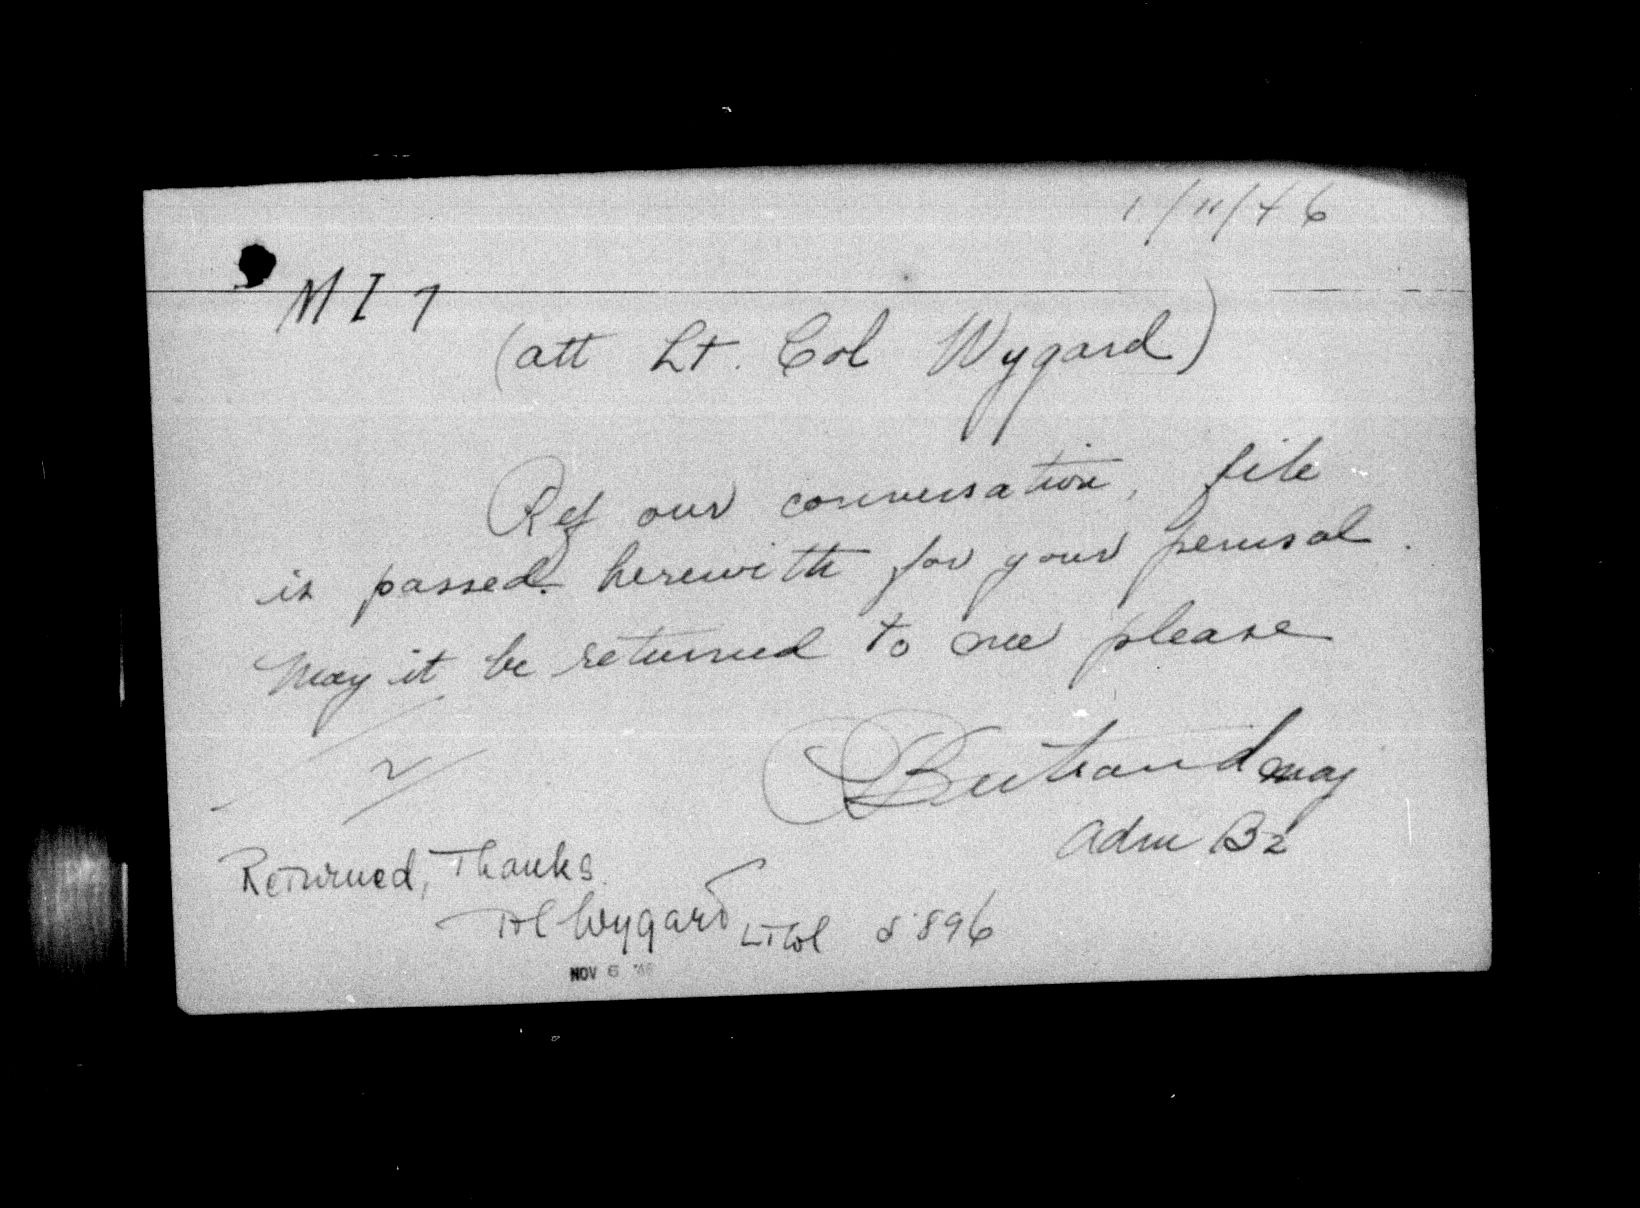 1/11/46
MI 7
(att Lt. Col Wygard)
Ref our conversation, file
is passed herewith for your perusal.
May it be returned to me please
Bertrand Maj
Adm B2
Returned, Thanks.
Wygard Lt Col 896
NOV 6 '46